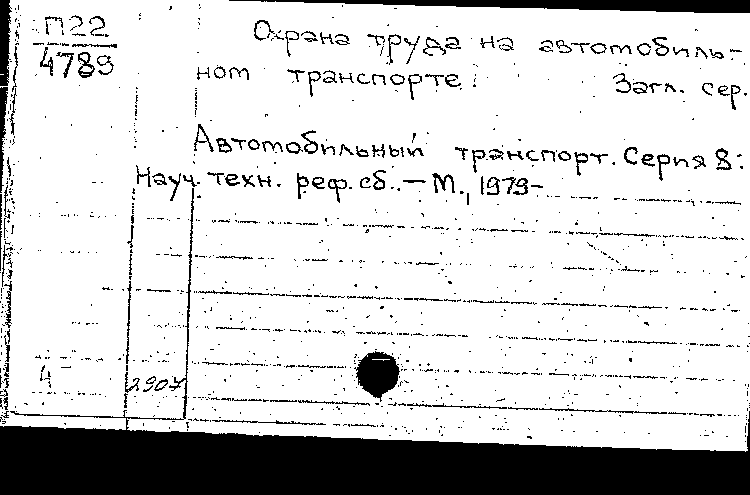 П22
4789
Охрана труда на автомобиль-
ном транспорте. Загл. сер.
Автомобильный транспорт. Серия 8:
Науч. техн. реф. сб. – М., 1979–
4 2907